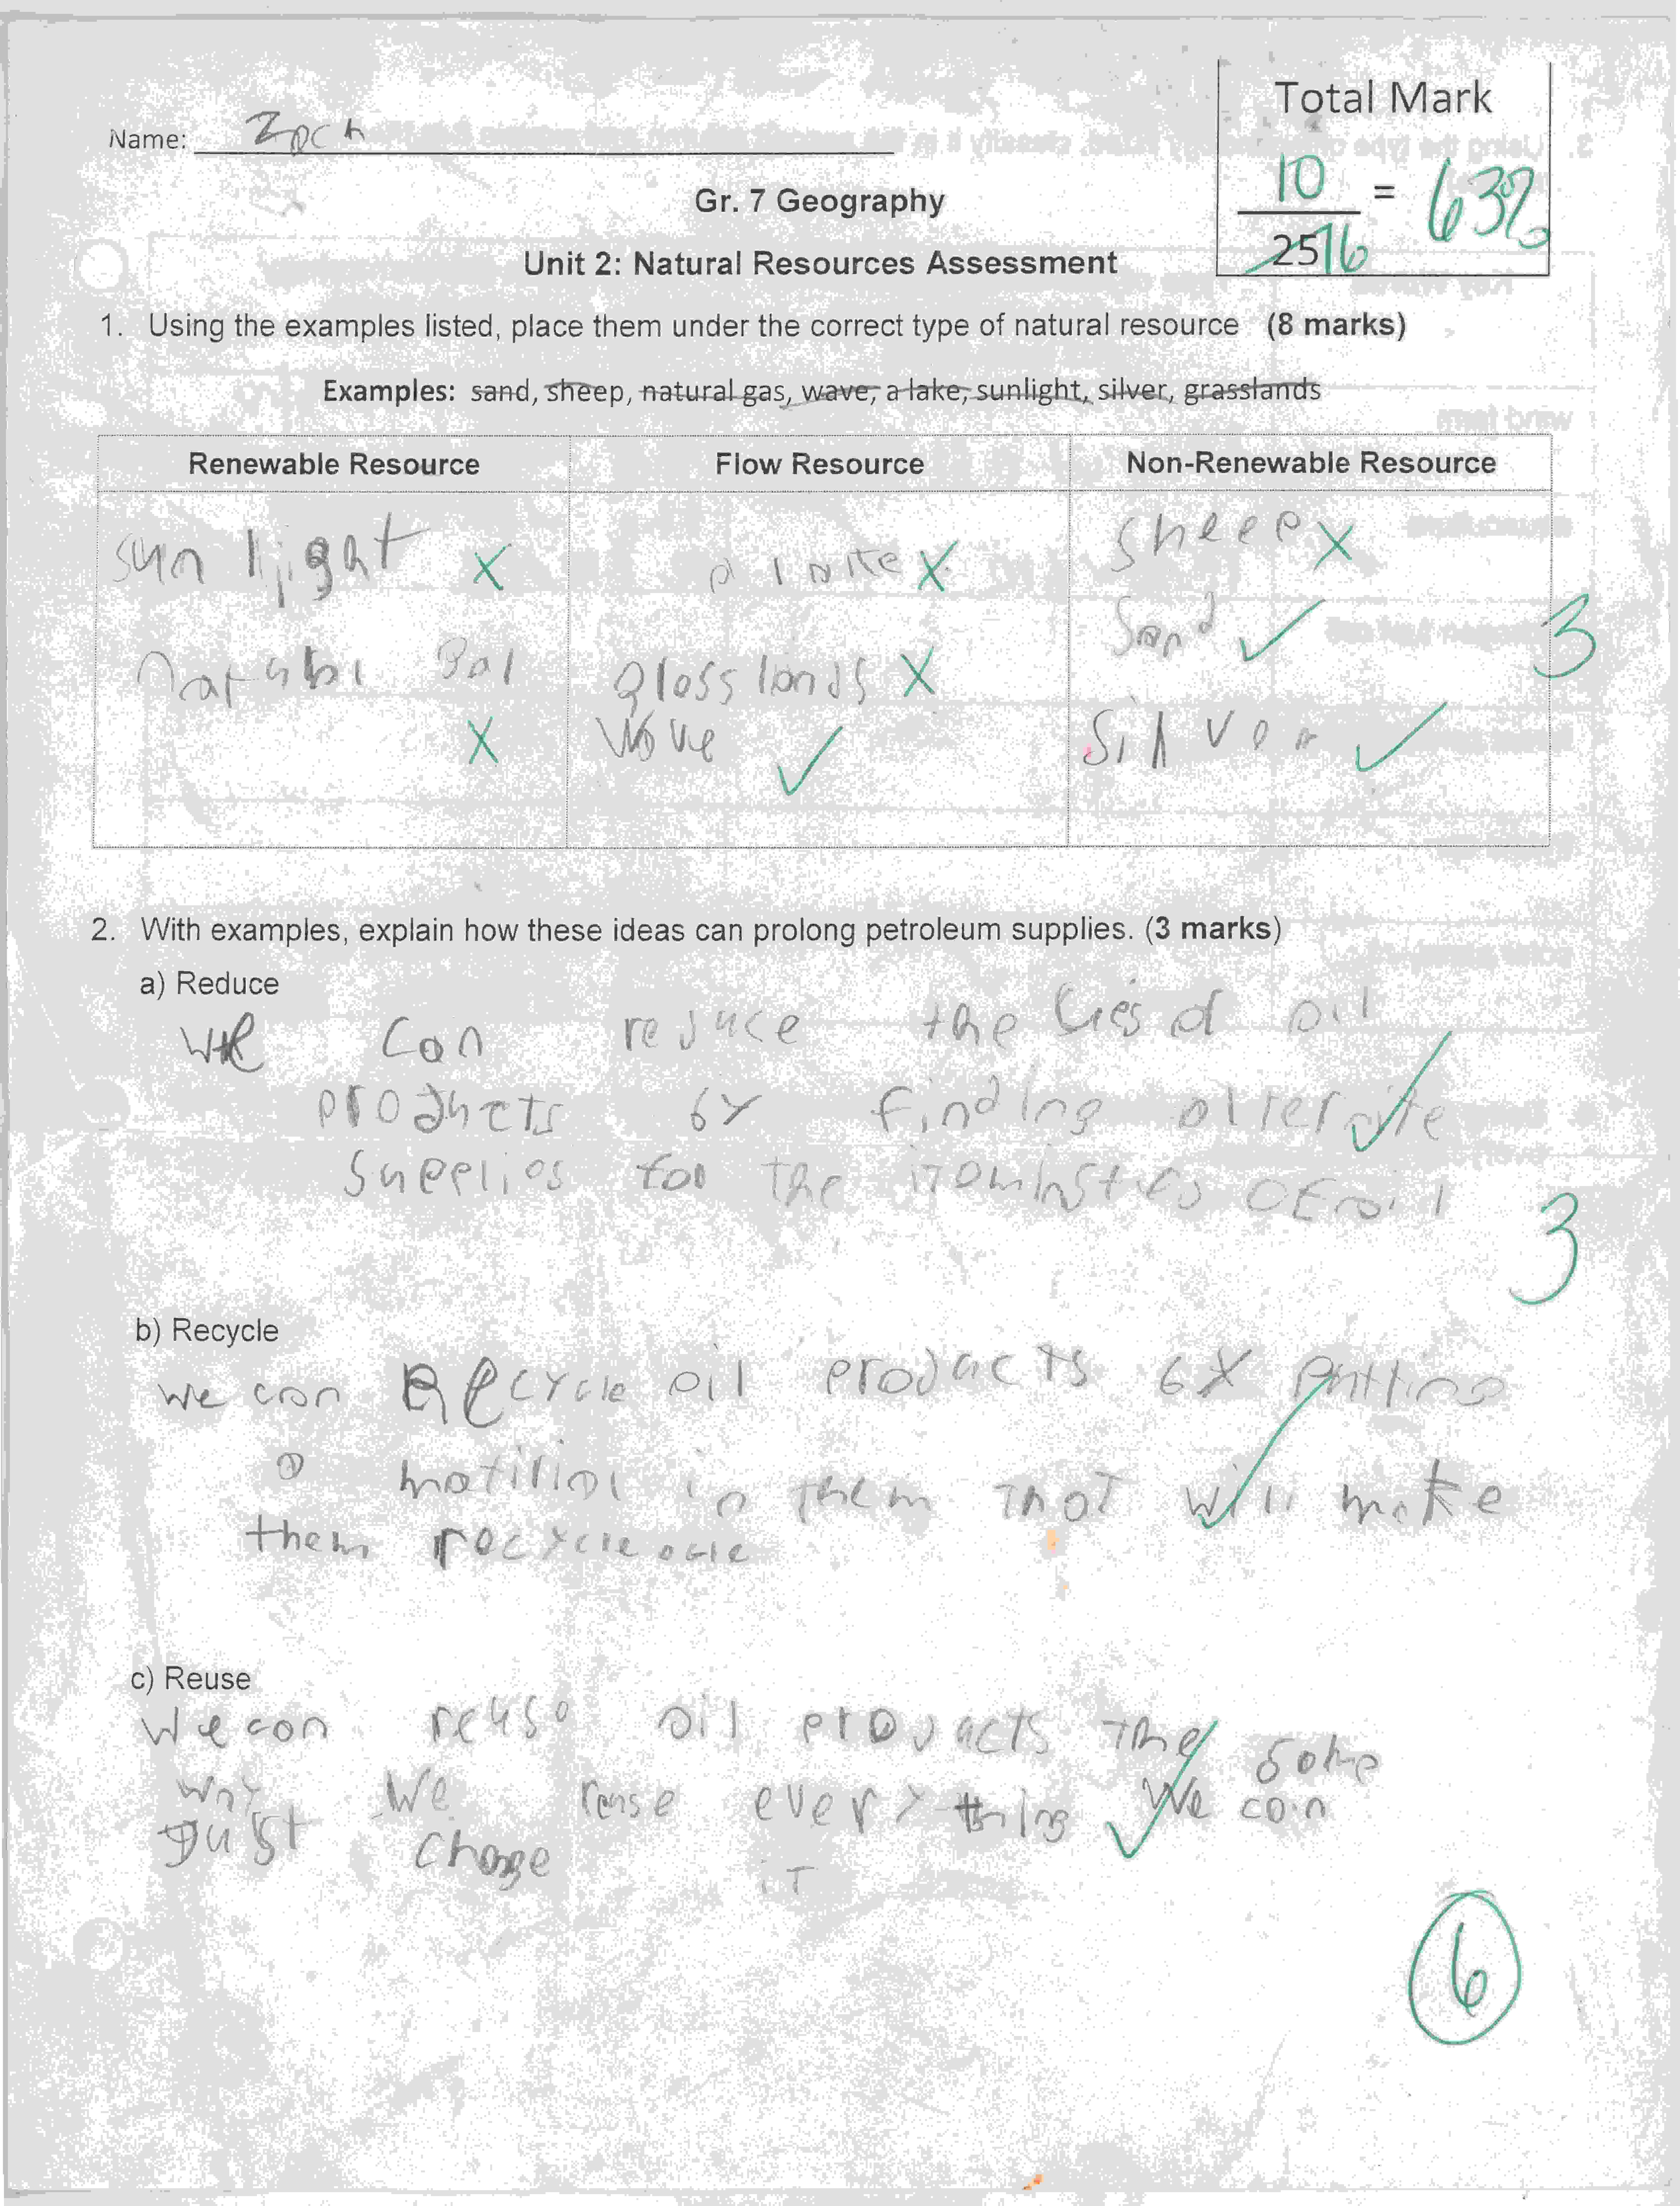 Name: Zach
Total Mark
10 / 25 16 = 63%
Gr. 7 Geography
Unit 2: Natural Resources Assessment
1. Using the examples listed, place them under the correct type of natural resource (8 marks)
Examples: sand, sheep, natural gas, wave, a lake, sunlight, silver, grasslands
Renewable Resource Flow Resource Non-Renewable Resource
sun light X
a lake X
sheep X
sand ✓
3
grass lands X
X
wave ✓
silver ✓
2. With examples, explain how these ideas can prolong petroleum supplies. (3 marks)
a) Reduce
we can reduce the of oil
products by finding alternite
Supplies for the of oil
3
b) Recycle
we can Recycle oil products by putting
a matirial in them that will make
them
c) Reuse
we can reuse oil products the same
way we reuse every thing we can
just change it
6